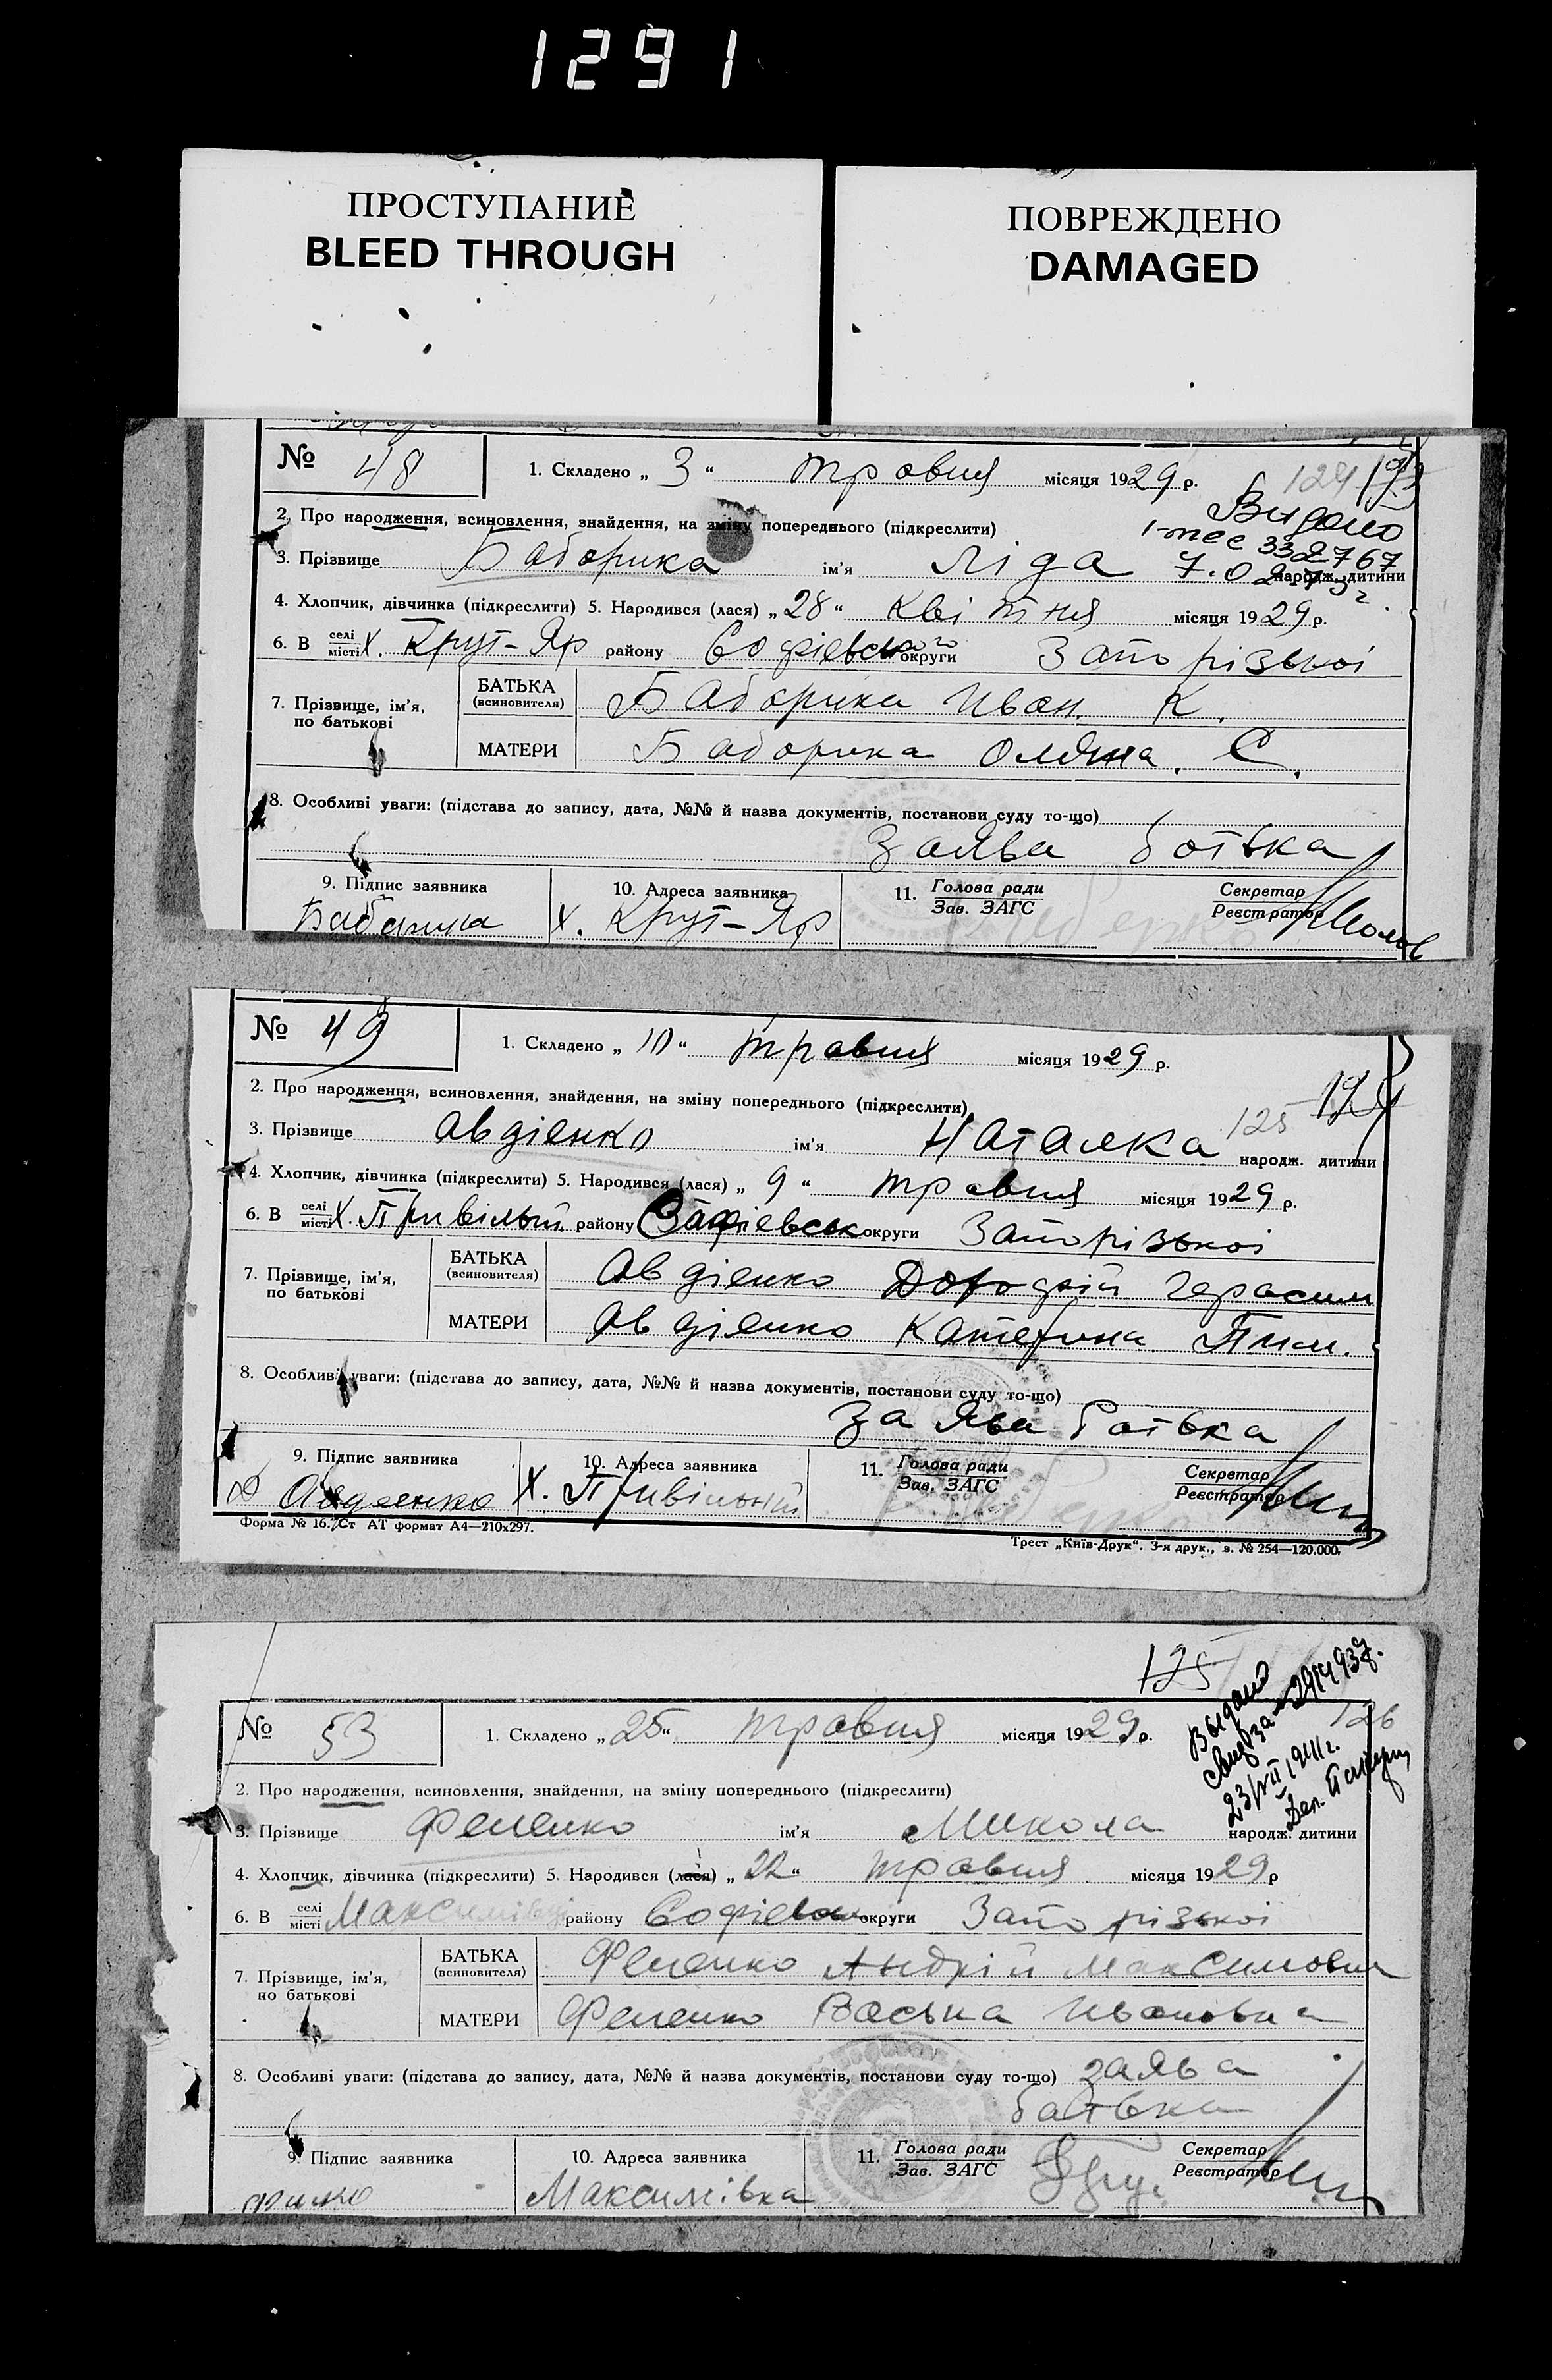 1291
ПРОСТУПАНИЕ
BLEED THROUGH
ПОВРЕЖДЕНО
DAMAGED
№ 48
1. Складено „ 3 “ травня місяця 1929 р.
124
2. Про народження, всиновлення, знайдення, на зміну попереднього (підкреслити)
Видано
332767
3. Прізвище Бабарика ім'я Ліда народж. дитини
4. Хлопчик, дівчинка (підкреслити) 5. Народився (лася) „ 28 “ квітня місяця 1929 р.
6. В селі місті х. Крут-Яр району Софіевського округи Запорізькоі
7. Прізвище, ім'я, по батькові
БАТЬКА (всиновителя) Бабарика Иван. К.
МАТЕРИ Бабарика Оляна. С.
8. Особливі уваги: (підстава до запису, дата, №№ й назва документів, постанови суду то-що)
Заява батька
9. Підпис заявника
10. Адреса заявника
11. Голова ради Зав. ЗАГС
Секретар Реєстратор
Бабарика х. Крут-Яр
№ 49
1. Складено „ 10 “ травня місяця 1929 р.
2. Про народження, всиновлення, знайдення, на зміну попереднього (підкреслити)
125
3. Прізвище Авдіенко ім'я Наталка народж. дитини
4. Хлопчик, дівчинка (підкреслити) 5. Народився (лася) „ 9 “ травня місяця 1929 р.
6. В селі місті х. Привільный району Софіевськ округи Запорізькоі
7. Прізвище, ім'я, по батькові
БАТЬКА (всиновителя) Авдіенко Дорофій Герасим
МАТЕРИ Авдіенко Катерина Пим.
8. Особливі уваги: (підстава до запису, дата, №№ й назва документів, постанови суду то-що)
Заява батька
9. Підпис заявника
10. Адреса заявника
11. Голова ради Зав. ЗАГС
Секретар Реєстратор
Д Авдеенко х. Привільный
Форма № 16. Ст АТ формат А4—210х297.
Трест „Київ-Друк“. 3-я друк., з. № 254—120.000.
125
№ 53
1. Складено „ 25 “ травня місяця 1929 р.
126
Выдано
23/VII 1941 г.
2. Про народження, всиновлення, знайдення, на зміну попереднього (підкреслити)
3. Прізвище Фененко ім'я Микола народж. дитини
4. Хлопчик, дівчинка (підкреслити) 5. Народився (лася) „ 22 “ травня місяця 1929 р
6. В селі місті Максимівці району Софіевськ округи Запорізькоі
7. Прізвище, ім'я, по батькові
БАТЬКА (всиновителя) Фененко Андрій Максимович
МАТЕРИ Фененко Васька Ивановна
8. Особливі уваги: (підстава до запису, дата, №№ й назва документів, постанови суду то-що) заява
батька
9. Підпис заявника
10. Адреса заявника
11. Голова ради Зав. ЗАГС
Секретар Реєстратор
Максимівка